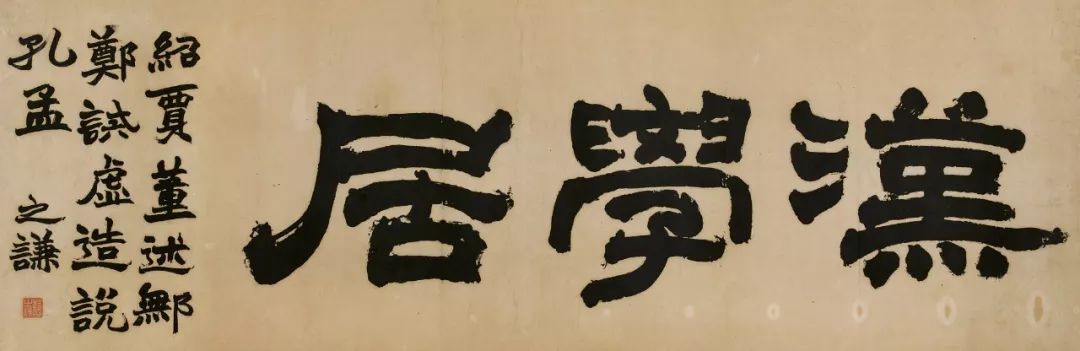 漢學居
紹賈董述鄦
鄭詆虛造說
孔孟 之謙